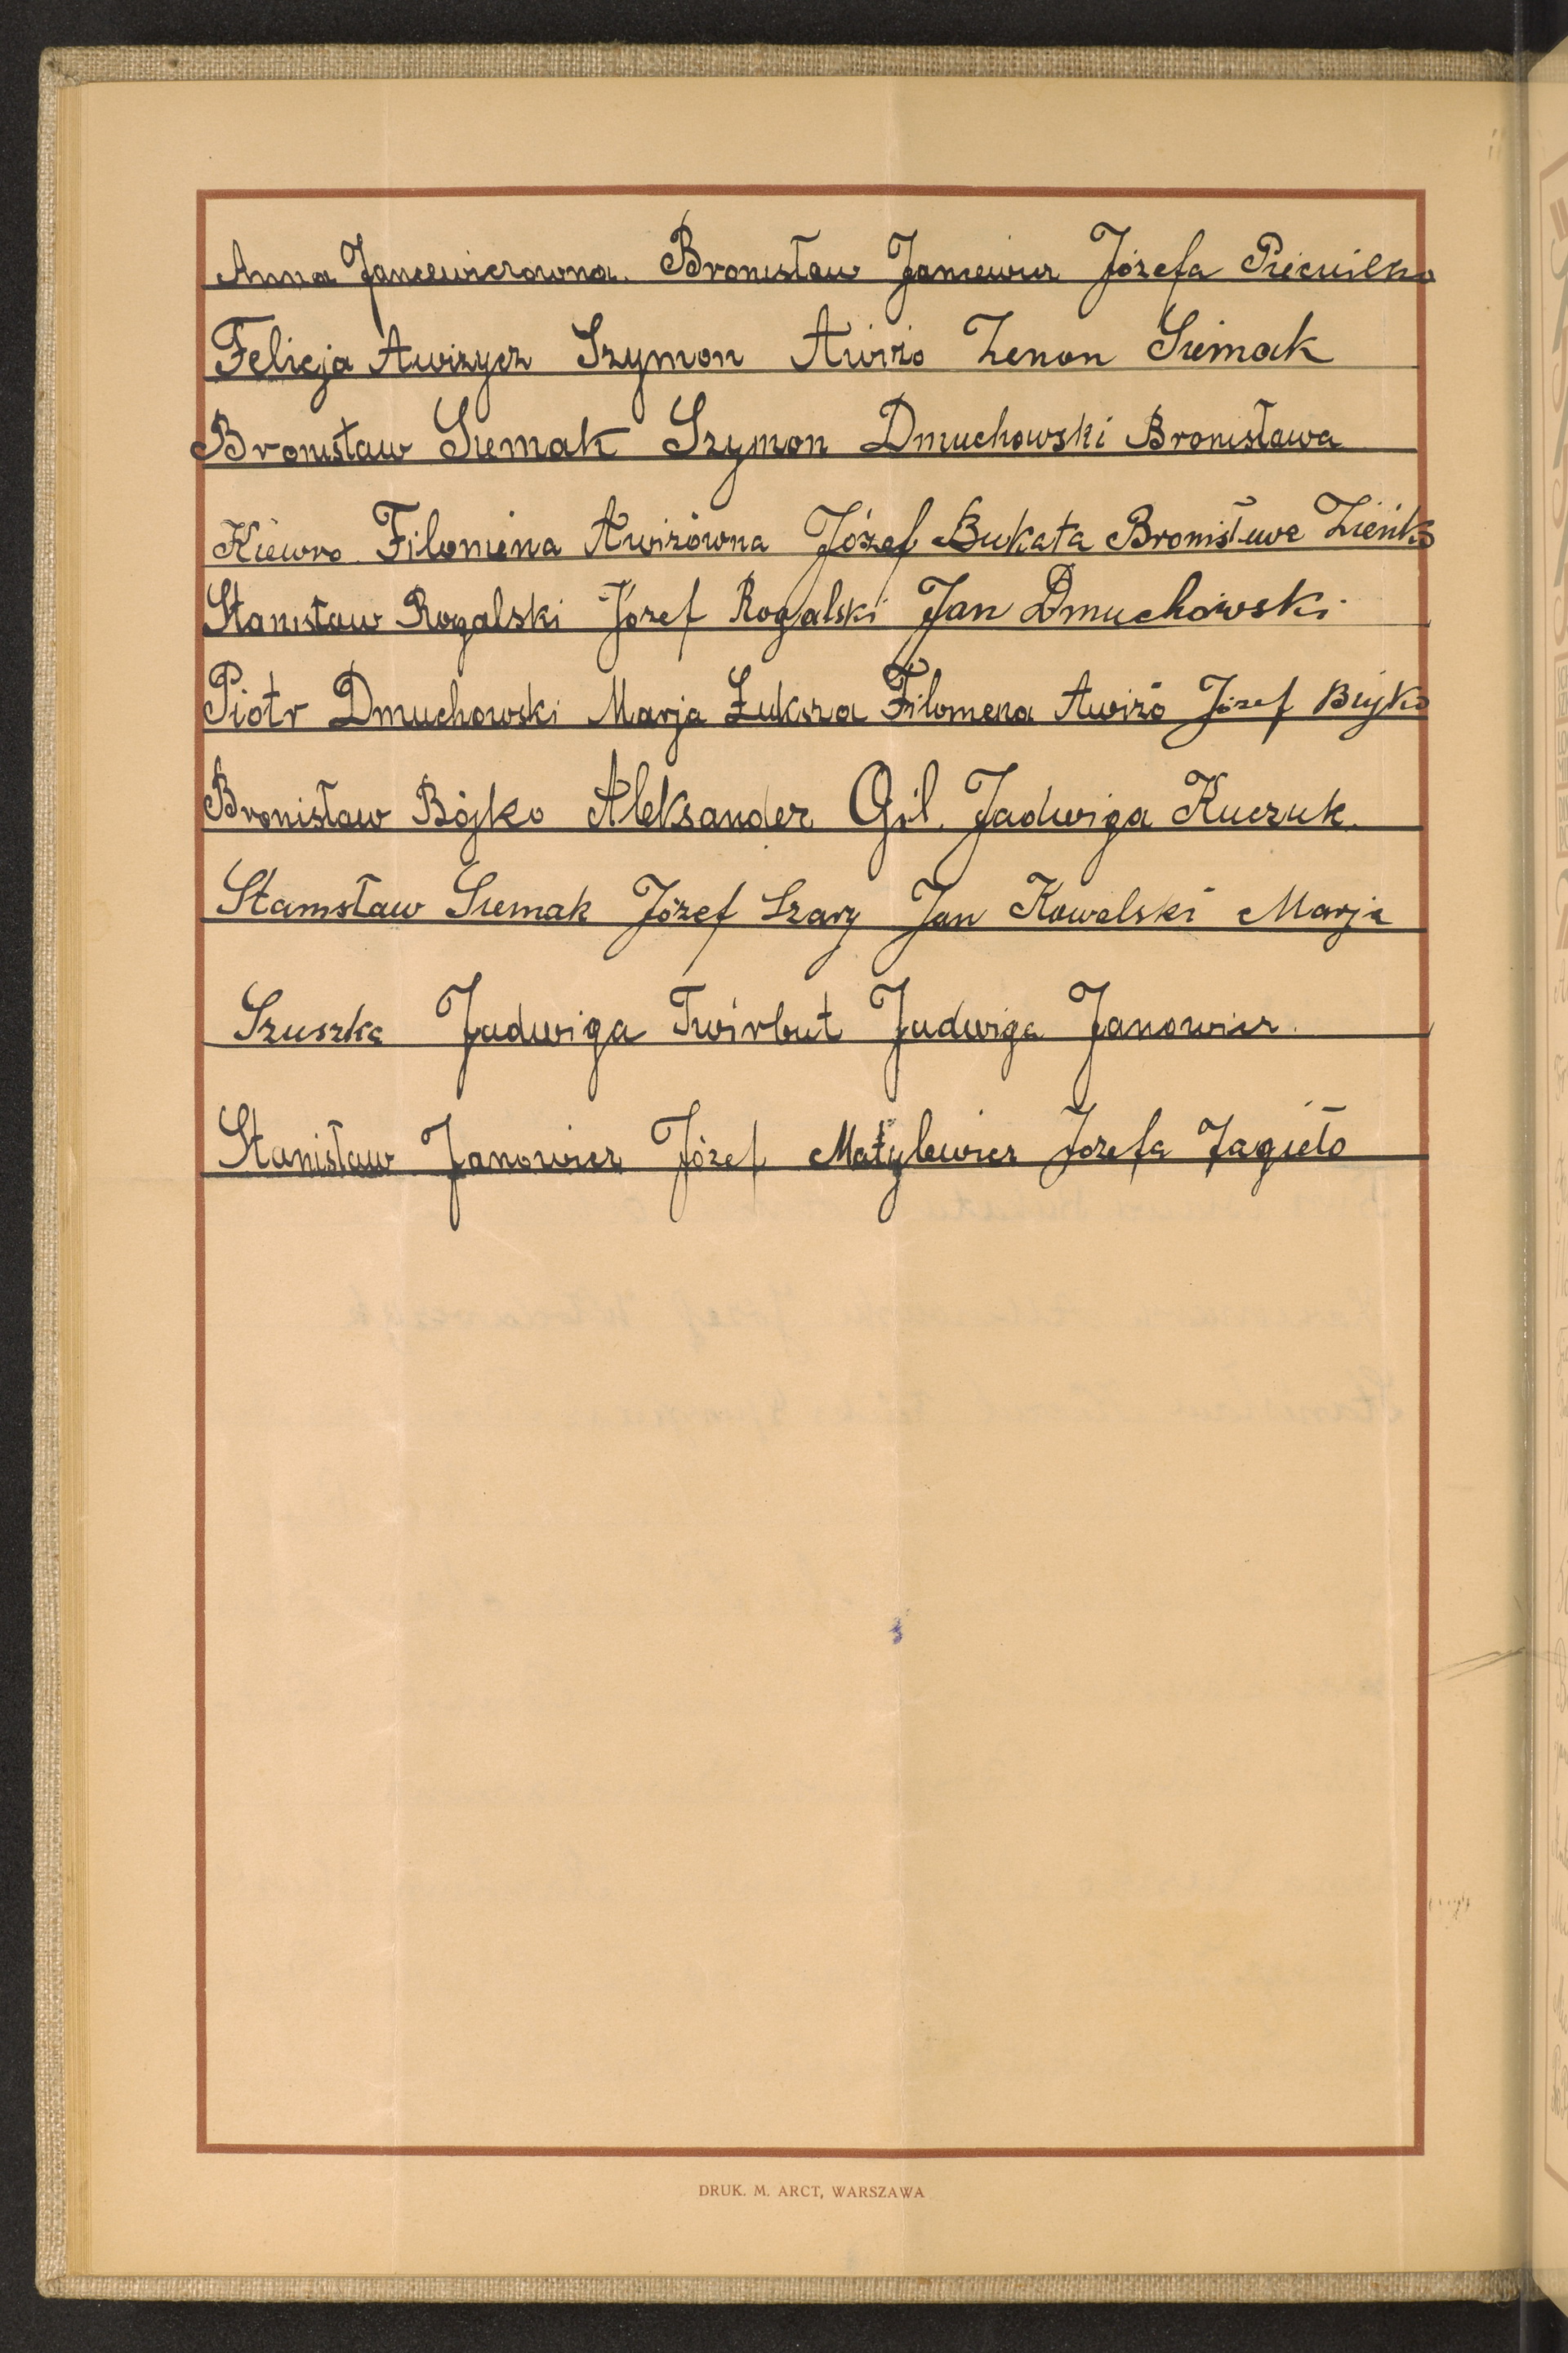 Anna Jancewiczowna. Bronisław Jancewicz Józefa Pieciulko
Felicja Awizycz Szymon Awizo Zenon Siemak
Bronisław Siemak Szymon Dmuchowski Bronisława
Kiewro Filomena Awizówna Józef Bukata Bronisława Zieńko
Stanisław Rogalski Józef Rogalski Jan Dmuchowski
Piotr Dmuchowski Marja Łuksza Filomena Awizo Józef Bujko
Bronisław Bójko Aleksander Gil. Jadwiga Kuczuk.
Stanisław Siemak Józef Szary Jan Kowalski Marja
Szuszka Jadwiga Twirbut Jadwiga Janowicz.
Stanisław Janowicz Józef Matylewicz Józefa Jagieło
DRUK. M. ARCT, WARSZAWA